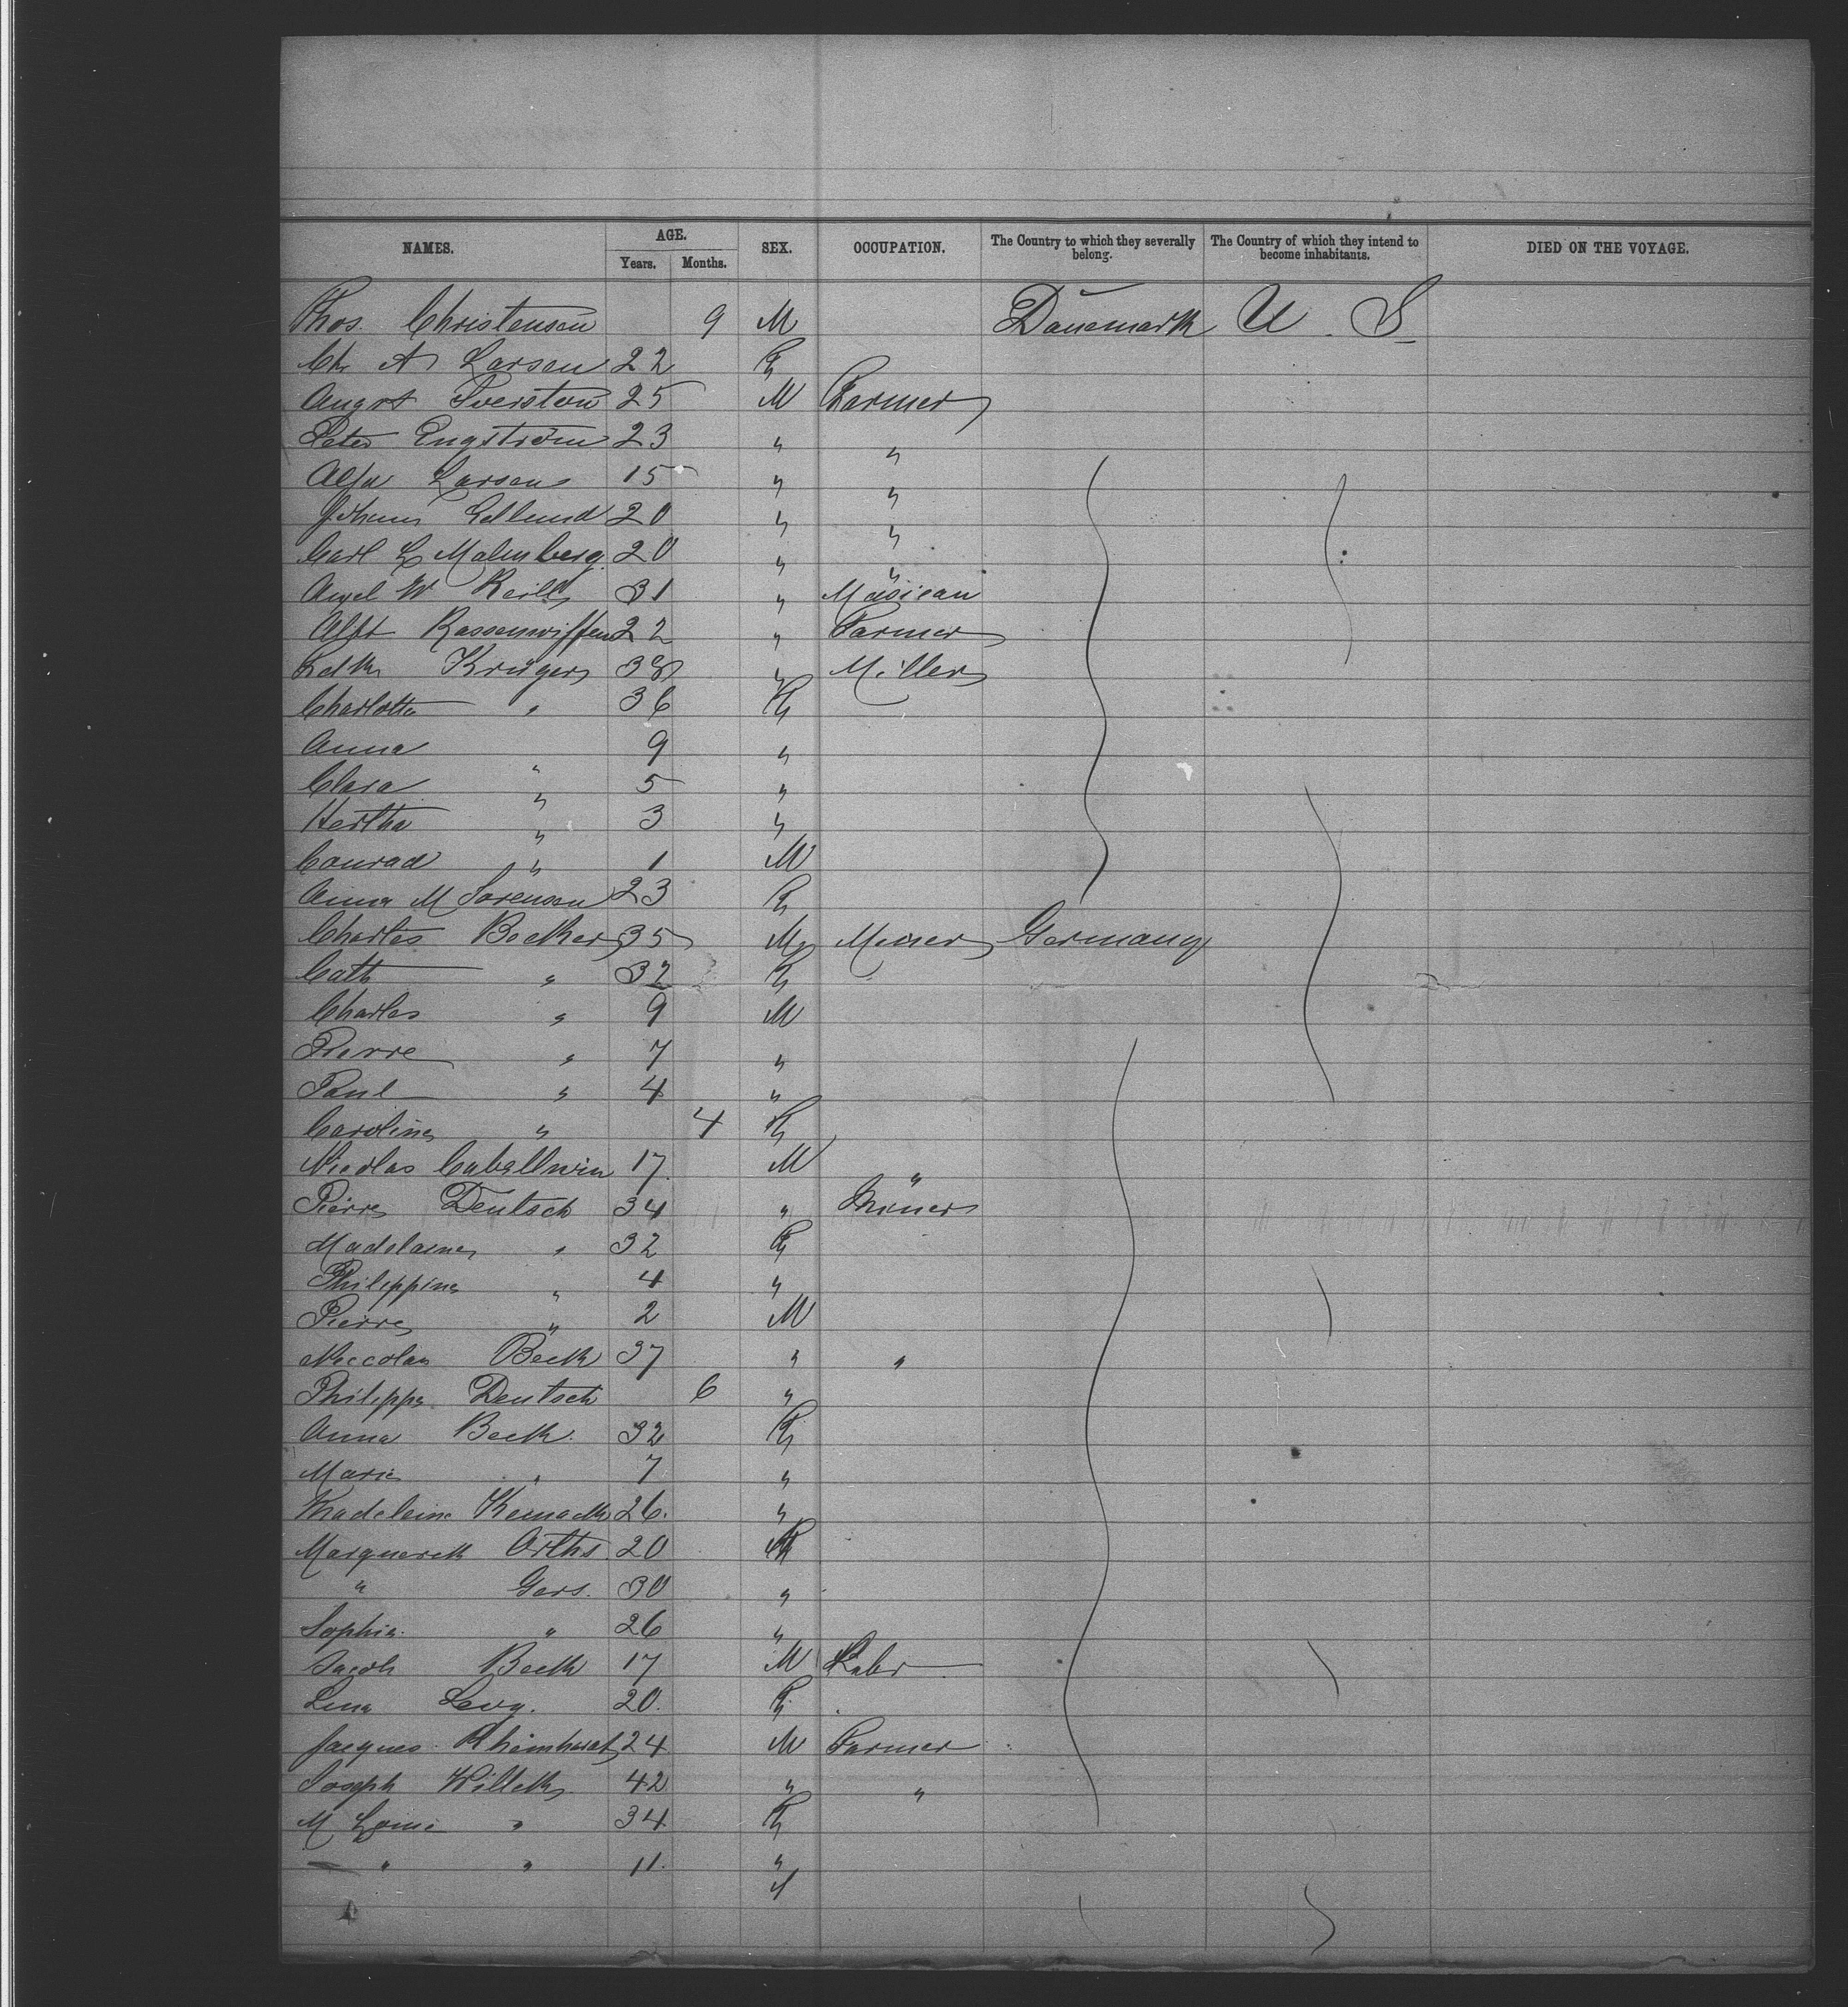 NAMES. AGE. Years. Months. SEX. OCCUPATION. The Country to which they severally belong. The Country of which they intend to become inhabitants. DIED ON THE VOYAGE.
Thos. Christensen 9 M Danemark U. S
Chr A Larsen 22 F
Augst 25 M Farmer
Peter Engström 23 " "
Alfa Larsen 15 " "
20 " "
Carl L Malmberg 20 " "
31 " Musican
Alft 22 " Farmer
Krüger 38 " Miller
Charlotte " 36 F
Anna " 9 "
Clara " 5 "
Hertha " 3 "
Conrad " 1 M
Anna M Sorensen 23 F
Charles Becker 35 M Miner Germany
Cath " 32 F
Charles " 9 M
Pierre " 7 "
Paul " 4 "
Caroline " 4 F
Nicolas 17 M "
Pierre Deutsch 34 " Miner
Madelaine " 32 F
Philippine " 4 "
Pierre " 2 M
Niccolas Beck 37 " "
Philippe Deutsch 6 "
Anna Beck 32 F
Marie " 7 "
Madeleine 26. "
Marguereth Orths 20 F
" Gers. 30 "
Sophie " 26 "
Jacob Beck 17 M Labr
Lena Levy. 20. F
Jacques 24 M Farmer
Joseph Willek 42 " "
M Louise " 34 F
" " 11. "
"